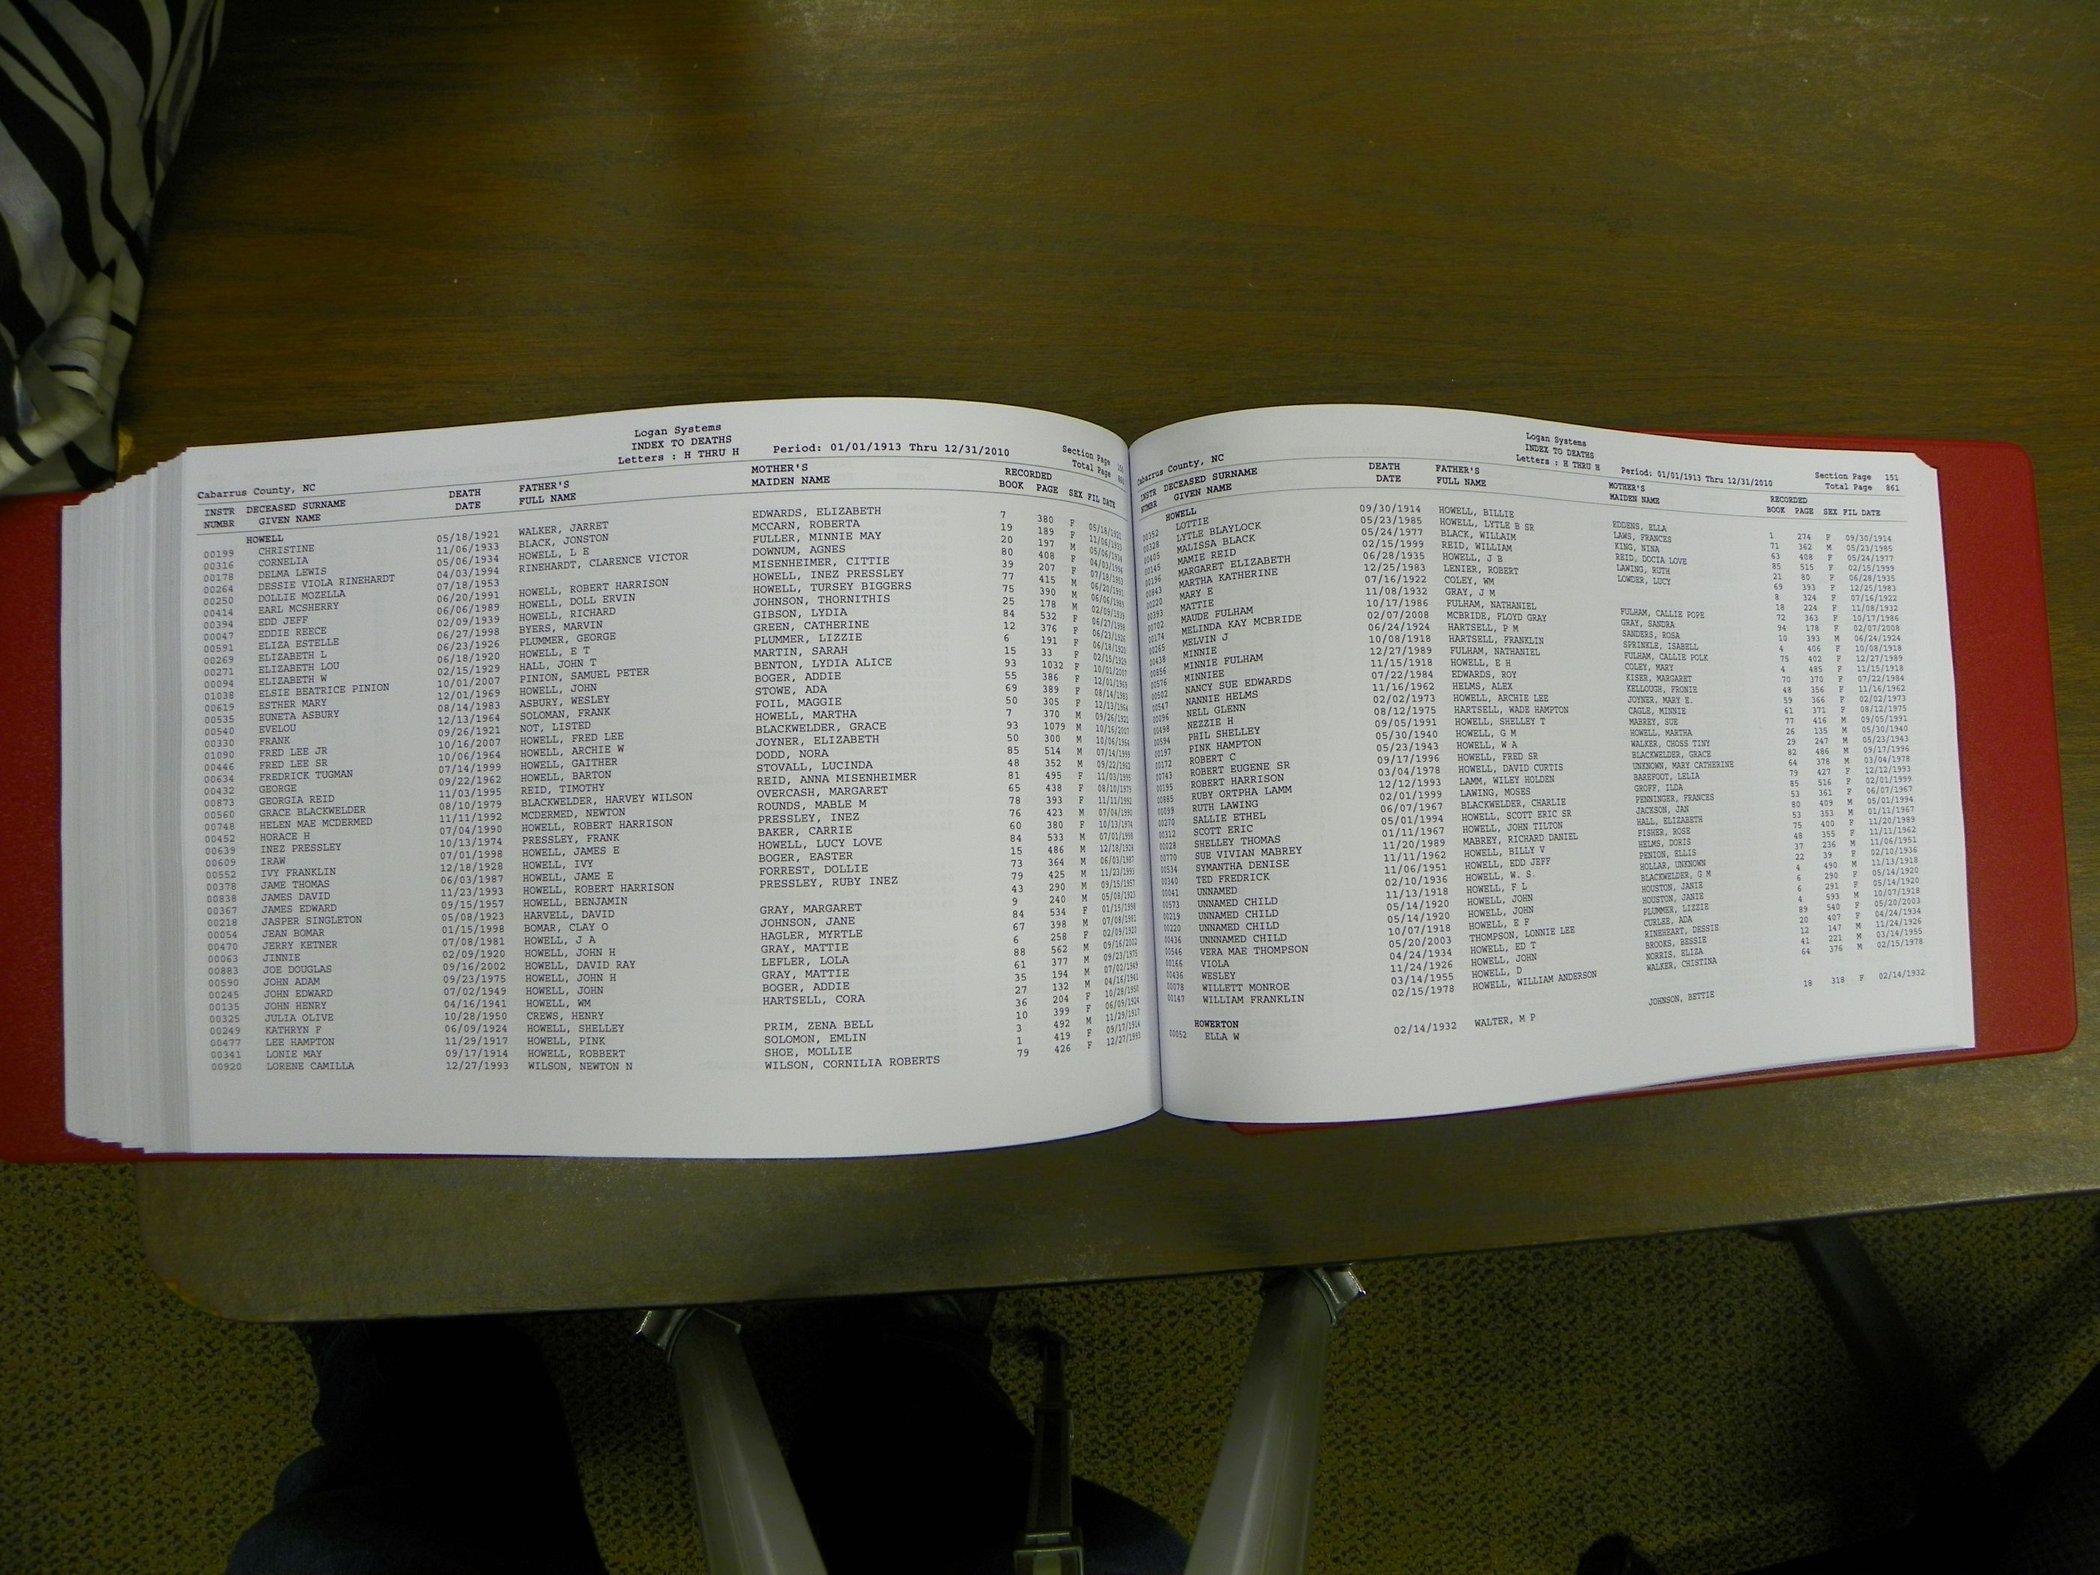 Logan Systems
INDEX TO DEATHS
Letters : H THRU H Period: 01/01/1913 Thru 12/31/2010
Section Page
Total Page
Cabarrus County, NC
INSTR DECEASED SURNAME DEATH FATHER'S MOTHER'S RECORDED
NUMBR GIVEN NAME DATE FULL NAME MAIDEN NAME BOOK PAGE SEX FIL DATE
HOWELL
00199 CHRISTINE 05/18/1921 WALKER, JARRET EDWARDS, ELIZABETH 7 380 F 05/18/1921
00316 CORNELIA 11/06/1933 BLACK, JONSTON MCCARN, ROBERTA 19 189 F 11/06/1933
00178 DELMA LEWIS 05/06/1934 HOWELL, L E FULLER, MINNIE MAY 20 197 M 05/06/1934
00264 DESSIE VIOLA RINEHARDT 04/03/1994 RINEHARDT, CLARENCE VICTOR DOWNUM, AGNES 80 408 F 04/03/1994
00250 DOLLIE MOZELLA 07/18/1953 MISENHEIMER, CITTIE 39 207 F 07/18/1953
00414 EARL MCSHERRY 06/20/1991 HOWELL, ROBERT HARRISON HOWELL, INEZ PRESSLEY 77 415 M 06/20/1991
00394 EDD JEFF 06/06/1989 HOWELL, DOLL ERVIN HOWELL, TURSEY BIGGERS 75 390 M 06/06/1989
00047 EDDIE REECE 02/09/1939 HOWELL, RICHARD JOHNSON, THORNITHIS 25 178 M 02/09/1939
00591 ELIZA ESTELLE 06/27/1998 BYERS, MARVIN GIBSON, LYDIA 84 532 F 06/27/1998
00269 ELIZABETH L 06/23/1926 PLUMMER, GEORGE GREEN, CATHERINE 12 376 F 06/23/1926
00271 ELIZABETH LOU 06/18/1920 HOWELL, E T PLUMMER, LIZZIE 6 191 F 06/18/1920
00094 ELIZABETH W 02/15/1929 HALL, JOHN T MARTIN, SARAH 15 33 F 02/15/1929
01038 ELSIE BEATRICE PINION 10/01/2007 PINION, SAMUEL PETER BENTON, LYDIA ALICE 93 1032 F 10/01/2007
00619 ESTHER MARY 12/01/1969 HOWELL, JOHN BOGER, ADDIE 55 386 F 12/01/1969
00535 EUNETA ASBURY 08/14/1983 ASBURY, WESLEY STOWE, ADA 69 389 F 08/14/1983
00540 EVELOU 12/13/1964 SOLOMAN, FRANK FOIL, MAGGIE 50 305 F 12/13/1964
00330 FRANK 09/26/1921 NOT, LISTED HOWELL, MARTHA 7 370 M 09/26/1921
01090 FRED LEE JR 10/16/2007 HOWELL, FRED LEE BLACKWELDER, GRACE 93 1079 M 10/16/2007
00446 FRED LEE SR 10/06/1964 HOWELL, ARCHIE W JOYNER, ELIZABETH 50 300 M 10/06/1964
00634 FREDRICK TUGMAN 07/14/1999 HOWELL, GAITHER DODD, NORA 85 514 M 07/14/1999
00432 GEORGE 09/22/1962 HOWELL, BARTON STOVALL, LUCINDA 48 352 M 09/22/1962
00873 GEORGIA REID 11/03/1995 REID, TIMOTHY REID, ANNA MISENHEIMER 81 495 F 11/03/1995
00560 GRACE BLACKWELDER 08/10/1979 BLACKWELDER, HARVEY WILSON OVERCASH, MARGARET 65 438 F 08/10/1979
00748 HELEN MAE MCDERMED 11/11/1992 MCDERMED, NEWTON ROUNDS, MABLE M 78 393 F 11/11/1992
00452 HORACE H 07/04/1990 HOWELL, ROBERT HARRISON PRESSLEY, INEZ 76 423 M 07/04/1990
00639 INEZ PRESSLEY 10/13/1974 PRESSLEY, FRANK BAKER, CARRIE 60 380 F 10/13/1974
00609 IRAW 07/01/1998 HOWELL, JAMES E HOWELL, LUCY LOVE 84 533 M 07/01/1998
00552 IVY FRANKLIN 12/18/1928 HOWELL, IVY BOGER, EASTER 15 486 M 12/18/1928
00378 JAME THOMAS 06/03/1987 HOWELL, JAME E FORREST, DOLLIE 73 364 M 06/03/1987
00838 JAMES DAVID 11/23/1993 HOWELL, ROBERT HARRISON PRESSLEY, RUBY INEZ 79 425 M 11/23/1993
00367 JAMES EDWARD 09/15/1957 HOWELL, BENJAMIN 43 290 M 09/15/1957
00218 JASPER SINGLETON 05/08/1923 HARVELL, DAVID GRAY, MARGARET 9 240 M 05/08/1923
00054 JEAN BOMAR 01/15/1998 BOMAR, CLAY O JOHNSON, JANE 84 534 F 01/15/1998
00470 JERRY KETNER 07/08/1981 HOWELL, J A HAGLER, MYRTLE 67 398 M 07/08/1981
00063 JINNIE 02/09/1920 HOWELL, JOHN H GRAY, MATTIE 6 258 F 02/09/1920
00883 JOE DOUGLAS 09/16/2002 HOWELL, DAVID RAY LEFLER, LOLA 88 562 M 09/16/2002
00590 JOHN ADAM 09/23/1975 HOWELL, JOHN H GRAY, MATTIE 61 377 M 09/23/1975
00245 JOHN EDWARD 07/02/1949 HOWELL, JOHN BOGER, ADDIE 35 194 M 07/02/1949
00135 JOHN HENRY 04/16/1941 HOWELL, WM HARTSELL, CORA 27 132 M 04/16/1941
00325 JULIA OLIVE 10/28/1950 CREWS, HENRY 36 204 F 10/28/1950
00249 KATHRYN F 06/09/1924 HOWELL, SHELLEY PRIM, ZENA BELL 10 399 F 06/09/1924
00477 LEE HAMPTON 11/29/1917 HOWELL, PINK SOLOMON, EMLIN 3 492 M 11/29/1917
00341 LONIE MAY 09/17/1914 HOWELL, ROBBERT SHOE, MOLLIE 1 419 F 09/17/1914
00920 LORENE CAMILLA 12/27/1993 WILSON, NEWTON N WILSON, CORNILIA ROBERTS 79 426 F 12/27/1993
Logan Systems
INDEX TO DEATHS
Letters : H THRU H Period: 01/01/1913 Thru 12/31/2010
Section Page 151
Total Page 861
Cabarrus County, NC
INSTR DECEASED SURNAME DEATH FATHER'S MOTHER'S RECORDED
NUMBR GIVEN NAME DATE FULL NAME MAIDEN NAME BOOK PAGE SEX FIL DATE
HOWELL
00352 LOTTIE 09/30/1914 HOWELL, BILLIE EDDENS, ELLA 1 274 F 09/30/1914
00328 LYTLE BLAYLOCK 05/23/1985 HOWELL, LYTLE B SR LAWS, FRANCES 71 362 M 05/23/1985
00405 MALISSA BLACK 05/24/1977 BLACK, WILLAIM KING, NINA 63 408 F 05/24/1977
00145 MAMIE REID 02/15/1999 REID, WILLIAM REID, DOCIA LOVE 85 515 F 02/15/1999
00196 MARGARET ELIZABETH 06/28/1935 HOWELL, J B LAWING, RUTH 21 80 F 06/28/1935
00843 MARTHA KATHERINE 12/25/1983 LENIER, ROBERT LOWDER, LUCY 69 393 F 12/25/1983
00220 MARY E 07/16/1922 COLEY, WM 8 324 F 07/16/1922
00393 MATTIE 11/08/1932 GRAY, J M 18 224 F 11/08/1932
00702 MAUDE FULHAM 10/17/1986 FULHAM, NATHANIEL FULHAM, CALLIE POPE 72 363 F 10/17/1986
00174 MELINDA KAY MCBRIDE 02/07/2008 MCBRIDE, FLOYD GRAY GRAY, SANDRA 94 178 F 02/07/2008
00265 MELVIN J 06/24/1924 HARTSELL, P M SANDERS, ROSA 10 393 M 06/24/1924
00438 MINNIE 10/08/1918 HARTSELL, FRANKLIN SPRINKLE, ISABELL 4 406 F 10/08/1918
00856 MINNIE FULHAM 12/27/1989 FULHAM, NATHANIEL FULHAM, CALLIE POLK 75 402 F 12/27/1989
00576 MINNIEE 11/15/1918 HOWELL, E H COLEY, MARY 4 485 F 11/15/1918
00502 NANCY SUE EDWARDS 07/22/1984 EDWARDS, ROY KISER, MARGARET 70 370 F 07/22/1984
00547 NANNIE HELMS 11/16/1962 HELMS, ALEX KELLOUGH, FRONIE 48 356 F 11/16/1962
00096 NELL GLENN 02/02/1973 HOWELL, ARCHIE LEE JOYNER, MARY E. 59 366 F 02/02/1973
00498 NEZZIE H 08/12/1975 HARTSELL, WADE HAMPTON CAGLE, MINNIE 61 371 F 08/12/1975
00594 PHIL SHELLEY 09/05/1991 HOWELL, SHELLEY T MABREY, SUE 77 416 M 09/05/1991
00197 PINK HAMPTON 05/30/1940 HOWELL, G M HOWELL, MARTHA 26 135 M 05/30/1940
00172 ROBERT C 05/23/1943 HOWELL, W A WALKER, CHOSS TINY 29 247 M 05/23/1943
00743 ROBERT EUGENE SR 09/17/1996 HOWELL, FRED SR BLACKWELDER, GRACE 82 486 M 09/17/1996
00195 ROBERT HARRISON 03/04/1978 HOWELL, DAVID CURTIS UNKNOWN, MARY CATHERINE 64 378 M 03/04/1978
00885 RUBY ORTPHA LAMM 12/12/1993 LAMM, WILEY HOLDEN BAREFOOT, LELIA 79 427 F 12/12/1993
00099 RUTH LAWING 02/01/1999 LAWING, MOSES GROFF, ILDA 85 516 F 02/01/1999
00270 SALLIE ETHEL 06/07/1967 BLACKWELDER, CHARLIE PENNINGER, FRANCES 53 361 F 06/07/1967
00312 SCOTT ERIC 05/01/1994 HOWELL, SCOTT ERIC SR JACKSON, JAN 80 409 M 05/01/1994
00028 SHELLEY THOMAS 01/11/1967 HOWELL, JOHN TILTON HALL, ELIZABETH 53 353 M 01/11/1967
00770 SUE VIVIAN MABREY 11/20/1989 MABREY, RICHARD DANIEL FISHER, ROSE 75 400 F 11/20/1989
00534 SYMANTHA DENISE 11/11/1962 HOWELL, BILLY V HELMS, DORIS 48 355 F 11/11/1962
00340 TED FREDRICK 11/06/1951 HOWELL, EDD JEFF PENION, ELLIS 37 236 M 11/06/1951
00041 UNNAMED 02/10/1936 HOWELL, W. S. HOLLAR, UNKNOWN 22 39 F 02/10/1936
00573 UNNAMED CHILD 11/13/1918 HOWELL, F L BLACKWELDER, G M 4 490 M 11/13/1918
00219 UNNAMED CHILD 05/14/1920 HOWELL, JOHN HOUSTON, JANIE 6 290 F 05/14/1920
00220 UNNAMED CHILD 05/14/1920 HOWELL, JOHN HOUSTON, JANIE 6 291 F 05/14/1920
00436 UNNNAMED CHILD 10/07/1918 HOWELL, E F PLUMMER, LIZZIE 4 593 M 10/07/1918
00546 VERA MAE THOMPSON 05/20/2003 THOMPSON, LONNIE LEE CURLEE, ADA 89 540 F 05/20/2003
00166 VIOLA 04/24/1934 HOWELL, ED T RINEHEART, DESSIE 20 407 F 04/24/1934
00436 WESLEY 11/24/1926 HOWELL, JOHN BROOKS, BESSIE 12 147 M 11/24/1926
00078 WILLETT MONROE 03/14/1955 HOWELL, D NORRIS, ELIZA 41 221 M 03/14/1955
00147 WILLIAM FRANKLIN 02/15/1978 HOWELL, WILLIAM ANDERSON WALKER, CHISTINA 64 376 M 02/15/1978
HOWERTON
00052 ELLA W 02/14/1932 WALTER, M P JOHNSON, BETTIE 18 318 F 02/14/1932